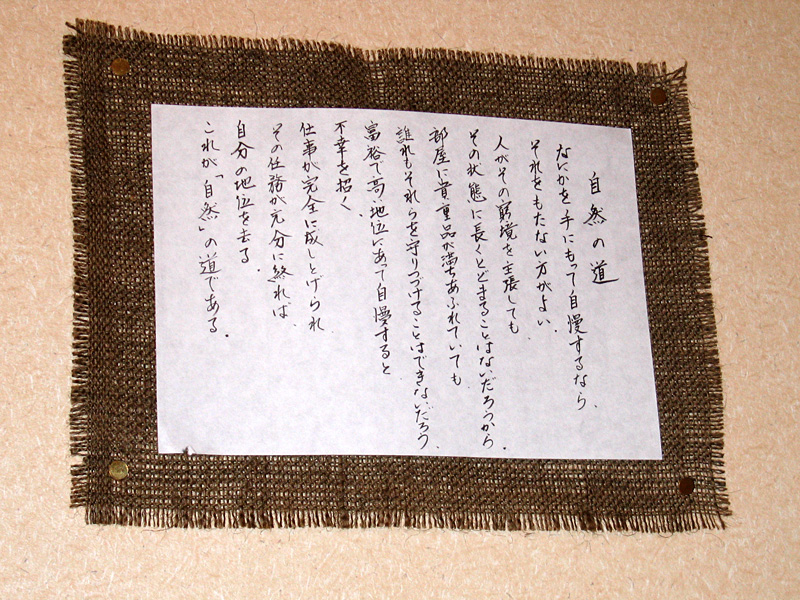 自然の道
なにかを手にもって自慢するなら、
それをもたない方がよい.
人がその窮境を主張しても
その状態に長くとどまることはないだろうから.
部屋に貴重品が満ちあふれていても
誰れもそれらを守りつづけることはできないだろう.
富裕で高い地位にあって自慢すると
不幸を招く
仕事が完全に成しとげられ
その任務が充分に終れば、
自分の地位を去る.
これが「自然」の道である.